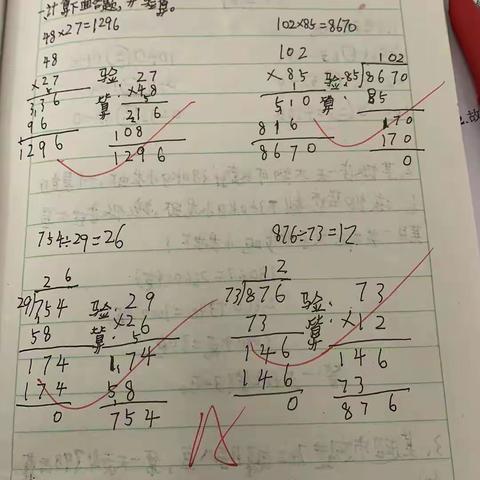 一.计算下面各题,并验算。
48×27=1296
48
×27
336
96
1296
验算:
27
×48
216
108
1296
102×85=8670
102
×85
510
816
8670
验算:
102
85)8670
85
170
170
0
754÷29=26
26
29)754
58
174
174
0
验算:
29
×26
174
58
754
876÷73=12
12
73)876
73
146
146
0
验算:
73
×12
146
73
876